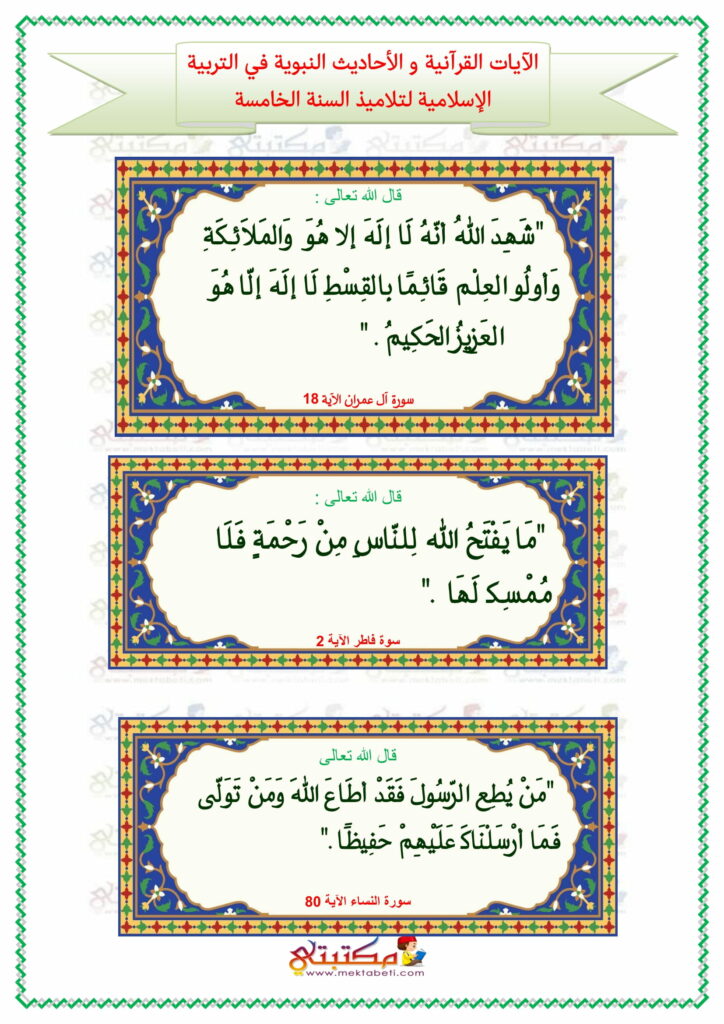 الآيات القرآنية و الأحاديث النبوية في التربية
الإسلامية لتلاميذ السنة الخامسة
قال الله تعالى :
"شَهِدَ اللهُ أنّهُ لَا إلَهَ إلا هُوَ وَالمَلَائِكَةِ
وَأولُو العِلْم قَائِمًا بالقِسْطِ لَا إلَهَ إلّا هُوَ
العَزِيزُ الحَكِيمُ . "
سورة آل عمران الآية 18
قال الله تعالى :
"مَا يَفْتَحُ الله لِلنّاسِ مِنْ رَحْمَةٍ فَلَا
مُمْسِكَ لَهَا ."
سوة فاطر الآية 2
قال الله تعالى
"مَنْ يُطِع الرّسُولَ فَقَدْ أطَاعَ اللهَ وَمَنْ تَوَلّى
فَمَا أرْسَلْنَاكَ عَلَيْهِمْ حَفِيظًا ."
سورة النساء الآية 80
مكتبتي
www.mektabeti.com